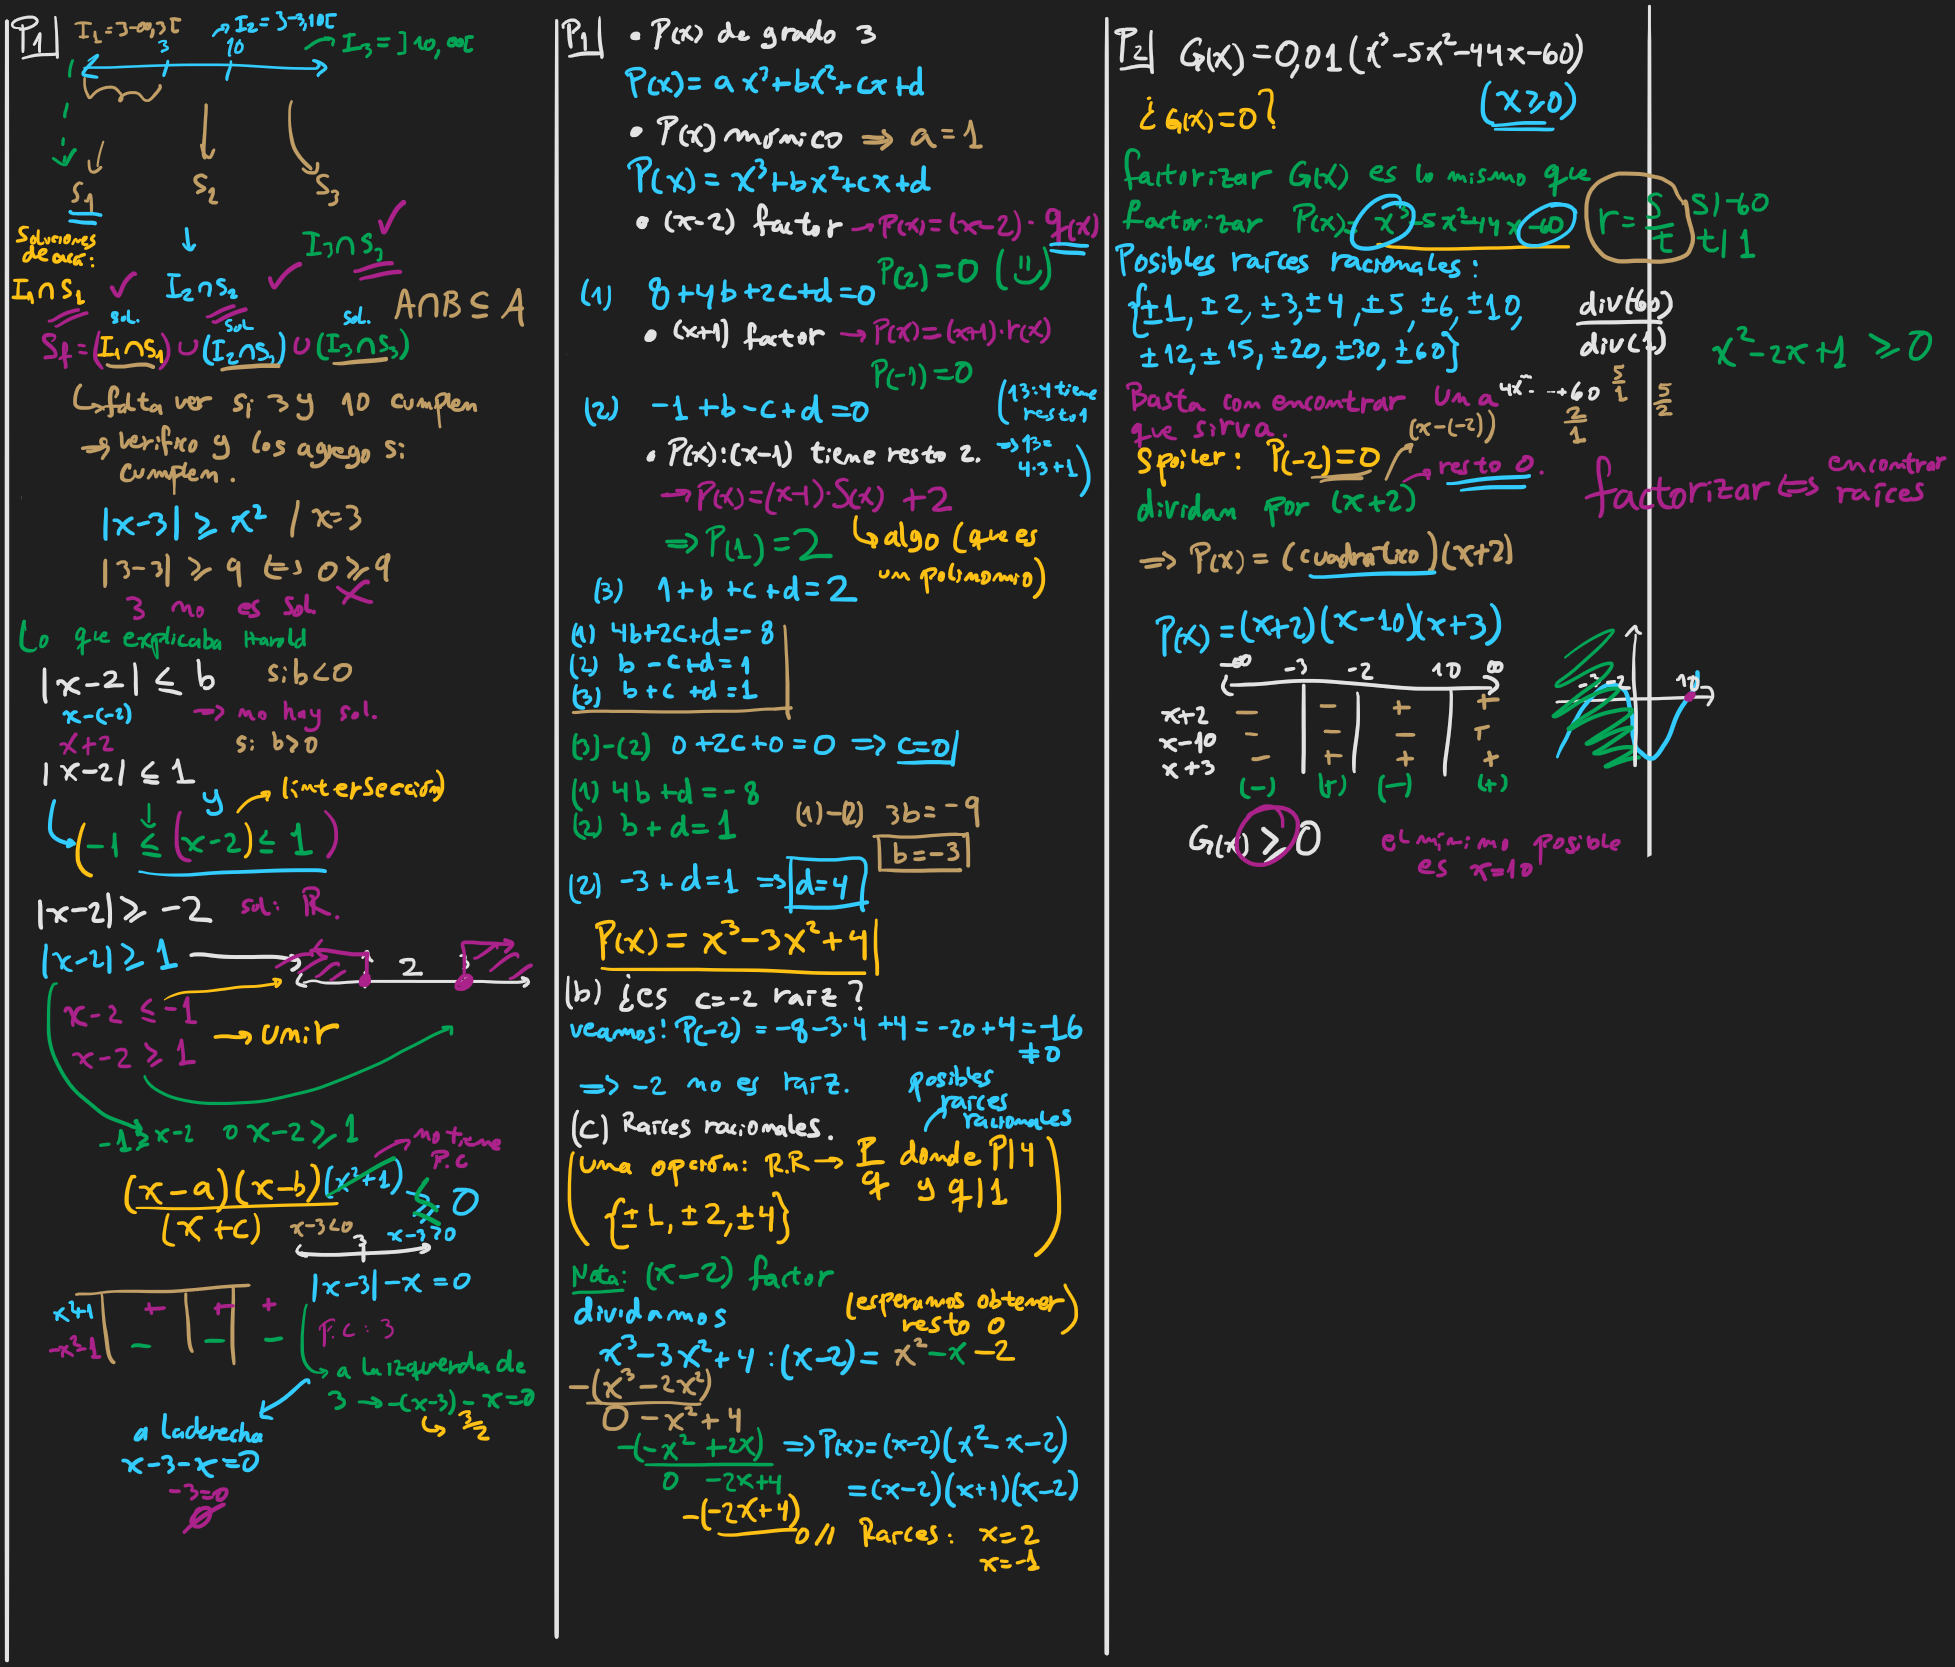 P1
I₁ = ]-∞, 3[
I₂ = ]-3, 10[
3
10
I₃ = ]10, ∞[
S₁
S₂
S₃
Soluciones
de acá:
I₁∩S₁
I₂∩S₂
I₃∩S₃
A∩B ⊆ A
sol.
sol
sol.
Sf = (I₁∩S₁) ∪ (I₂∩S₂) ∪ (I₃∩S₃)
↳ falta ver si 3 y 10 cumplen
⇒ verifico y los agrego si
cumplen.
|x-3| ≥ x² / x=3
|3-3| ≥ 9 ⇔ 0 ≥ 9
3 no es sol. X
Lo que explicaba Harold
|x-2| ≤ b si b<0
x-(-2) ⇒ no hay sol.
x+2 si b>0
|x-2| ≤ 1
y → (intersección)
(-1 ≤ (x-2) ≤ 1)
|x-2| ≥ -2 sol: ℝ.
|x-2| ≥ 1
1 2 3
x-2 ≤ -1
→ unir
x-2 ≥ 1
-1 ≥ x-2 o x-2 ≥ 1
no tiene
P.C
(x-a)(x-b)(x²+1) ≥ 0
(x+c)
x-3<0 3 x-3>0
|x-3| - x = 0
x²+1 + + +
-x²-1 - - -
P.C : 3
→ a la izquierda de
3 → -(x-3) - x = 0
↳ 3/2
a la derecha
x-3-x=0
-3=0
∅
P1
• P(x) de grado 3
P(x) = ax³+bx²+cx+d
• P(x) mónico ⇒ a = 1
P(x) = x³+bx²+cx+d
• (x-2) factor → P(x)=(x-2)·q(x)
P(2)=0 (ü)
(1) 8+4b+2c+d=0
• (x+1) factor → P(x)=(x+1)·r(x)
P(-1)=0
(2) -1+b-c+d=0
(13:4 tiene
resto 1
⇒ 13=
4·3+1)
• P(x):(x-1) tiene resto 2.
→ P(x)=(x-1)·S(x) + 2
⇒ P(1)=2
↳ algo (que es
un polinomio)
(3) 1+b+c+d=2
(1) 4b+2c+d=-8
(2) b-c+d=1
(3) b+c+d=1
(3)-(2) 0+2c+0=0 ⇒ c=0
(1) 4b+d=-8
(2) b+d=1
(1)-(2) 3b=-9
b=-3
(2) -3+d=1 ⇒ d=4
P(x) = x³-3x²+4
(b) ¿es c=-2 raíz?
veamos! P(-2) = -8-3·4+4 = -20+4 = -16
≠0
⇒ -2 no es raíz.
posibles
raíces
racionales
(c) Raíces racionales.
(una opción: R.R → P/q donde P|4
y q|1
{±1, ±2, ±4})
Nota: (x-2) factor
dividamos
(esperamos obtener
resto 0)
x³-3x²+4 : (x-2) = x²-x-2
-(x³-2x²)
0 -x²+4
-(-x²+2x)
0 -2x+4
-(-2x+4)
0//
⇒ P(x)=(x-2)(x²-x-2)
=(x-2)(x+1)(x-2)
Raíces: x=2
x=-1
P2
G(x) = 0,01(x³-5x²-44x-60)
¿G(x)=0?
(x≥0)
factorizar G(x) es lo mismo que
factorizar P(x)= x³-5x²-44x-60
r = s/t
s|-60
t|1
Posibles raíces racionales:
{±1, ±2, ±3, ±4, ±5, ±6, ±10,
±12, ±15, ±20, ±30, ±60}
div(60)
div(1)
x²-2x+1 ≥ 0
Basta con encontrar una
que sirva.
4x³ - ... +60
5/1
5/2
2/1
(x-(-2))
Spoiler: P(-2)=0
→ resto 0.
dividan por (x+2)
factorizar ⇔ encontrar
raíces
⇒ P(x) = (cuadrático)(x+2)
P(x) = (x+2)(x-10)(x+3)
-∞ -3 -2 10 ∞
x+2 - - + +
x-10 - - - +
x+3 - + + +
(-) (+) (-) (+)
-3 -2 10
G(x) ≥ 0
el mínimo posible
es x=10